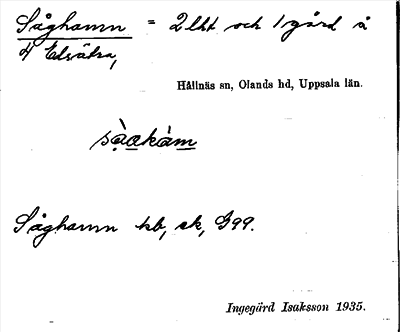 Såghamn = 2 lht och 1 gård å
4 Edsätra,
Hållnäs sn, Olands hd, Uppsala län.
sàakàm
Såghamn hb, ek, G99.
Ingegärd Isaksson 1935.